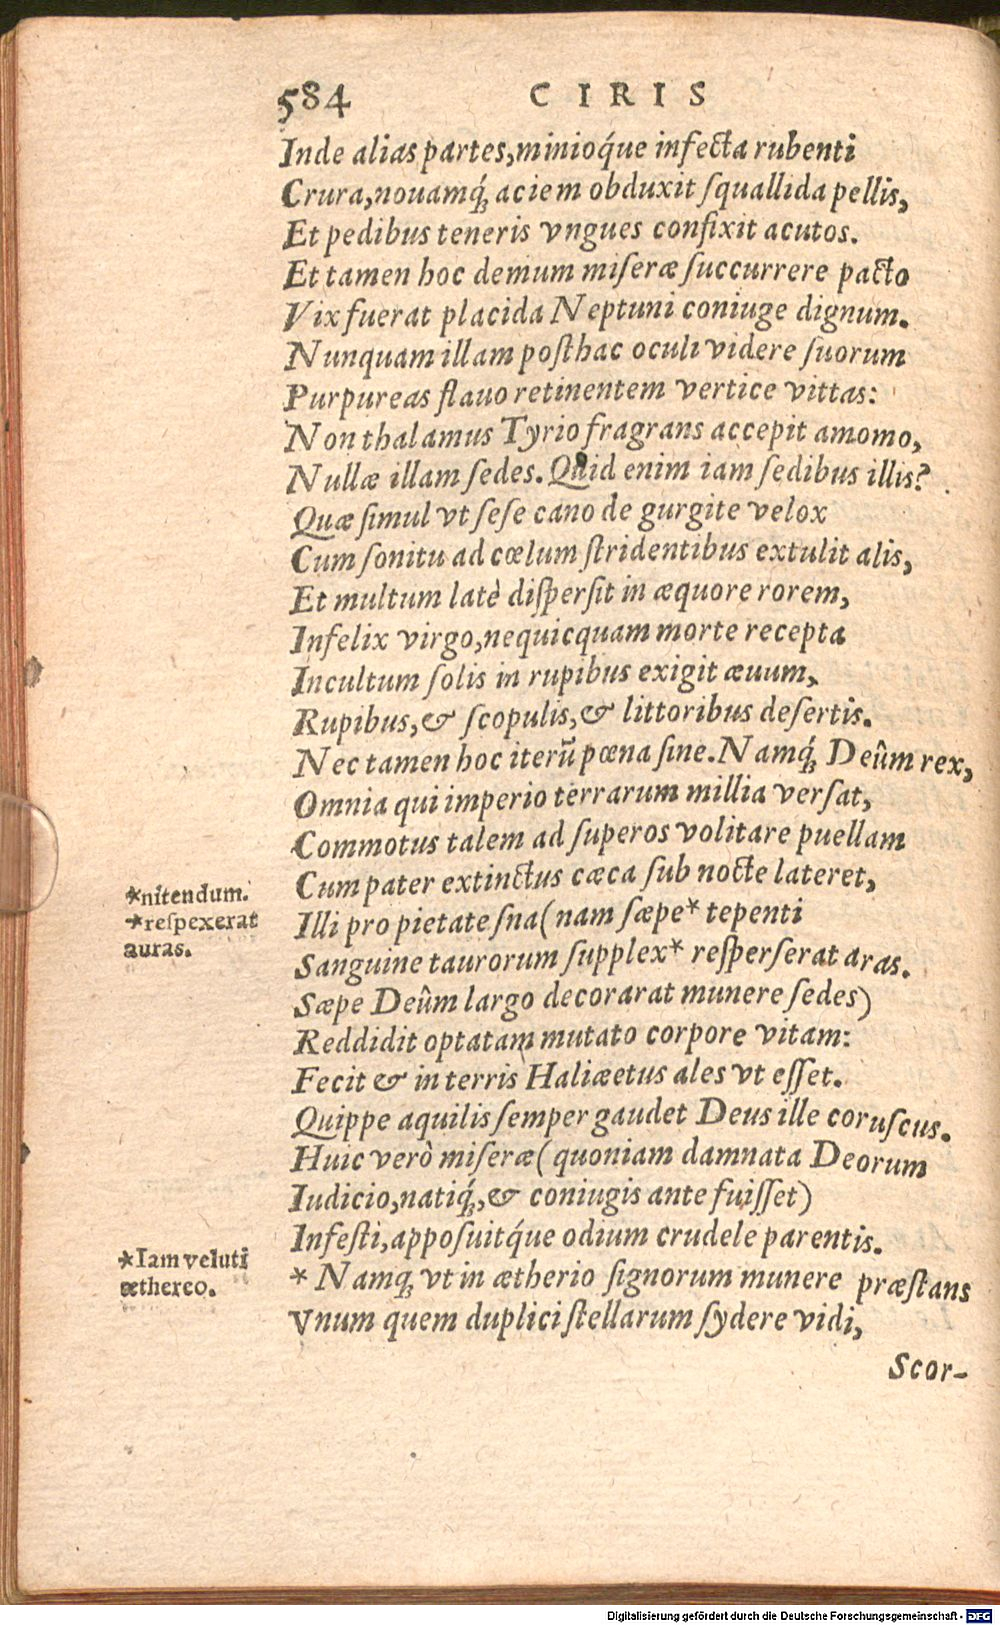 584 CIRIS
Inde alias partes,minioq́ue infecta rubenti
Crura,nouamq́; aciem obduxit ſquallida pellis,
Et pedibus teneris vngues confixit acutos.
Et tamen hoc demum miſeræ ſuccurrere pacto
Vix fuerat placida Neptuni coniuge dignum.
Nunquam illam poſthac oculi videre ſuorum
Purpureas flauo retinentem vertice vittas:
Non thalamus Tyrio fragrans accepit amomo,
Nullæ illam ſedes. Quid enim iam ſedibus illis?
Quæ ſimul vt ſeſe cano de gurgite velox
Cum ſonitu ad cœlum ſtridentibus extulit alis,
Et multum latè diſperſit in æquore rorem,
Infelix virgo,nequicquam morte recepta
Incultum ſolis in rupibus exigit æuum,
Rupibus,& ſcopulis,& littoribus deſertis.
Nec tamen hoc iterũ pœna ſine. Namq́; Deûm rex,
Omnia qui imperio terrarum millia verſat,
Commotus talem ad ſuperos volitare puellam
Cum pater extinctus cæca ſub nocte lateret,
*nitendum.
Illi pro pietate ſna (nam ſæpe* tepenti
*reſpexerat
auras.
Sanguine taurorum ſupplex* reſperſerat aras.
Sæpe Deûm largo decorarat munere ſedes)
Reddidit optatam mutato corpore vitam:
Fecit & in terris Haliæetus ales vt eſſet.
Quippe aquilis ſemper gaudet Deus ille coruſcus.
Huic verò miſeræ (quoniam damnata Deorum
Iudicio,natiq́;,& coniugis ante fuiſſet)
Infeſti,appoſuitq́ue odium crudele parentis.
*Iam veluti
æthereo.
* Namq; vt in ætherio ſignorum munere præſtans
Vnum quem duplici ſtellarum ſydere vidi,
Scor-
Digitalisierung gefördert durch die Deutsche Forschungsgemeinschaft - DFG